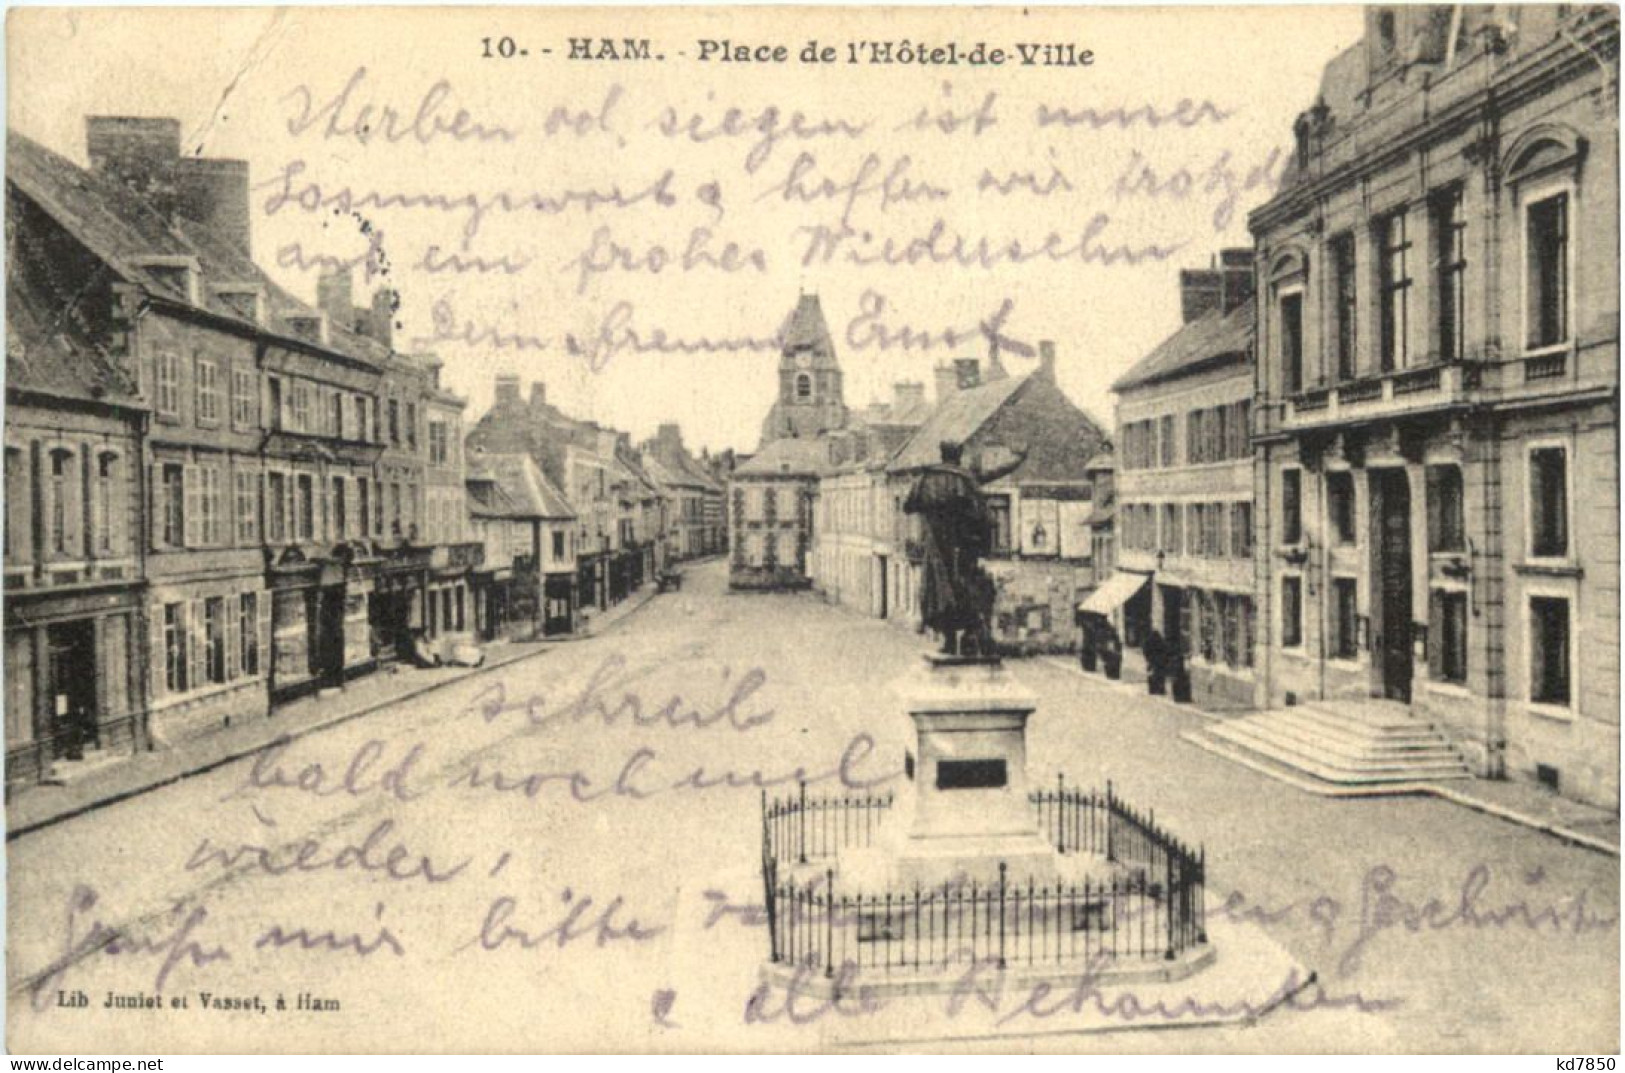 10. - HAM. - Place de l'Hôtel-de-Ville
Sterben od. siegen ist unser
Losungswort & hoffen wir trotzd
auf ein frohes Wiedersehn
Dein freund Ernst
schreib
bald noch mal
wieder,
Grüße mir bitte & Geschwister
& alle Bekannten
Lib Juniet et Vasset, à Ham
kd7850